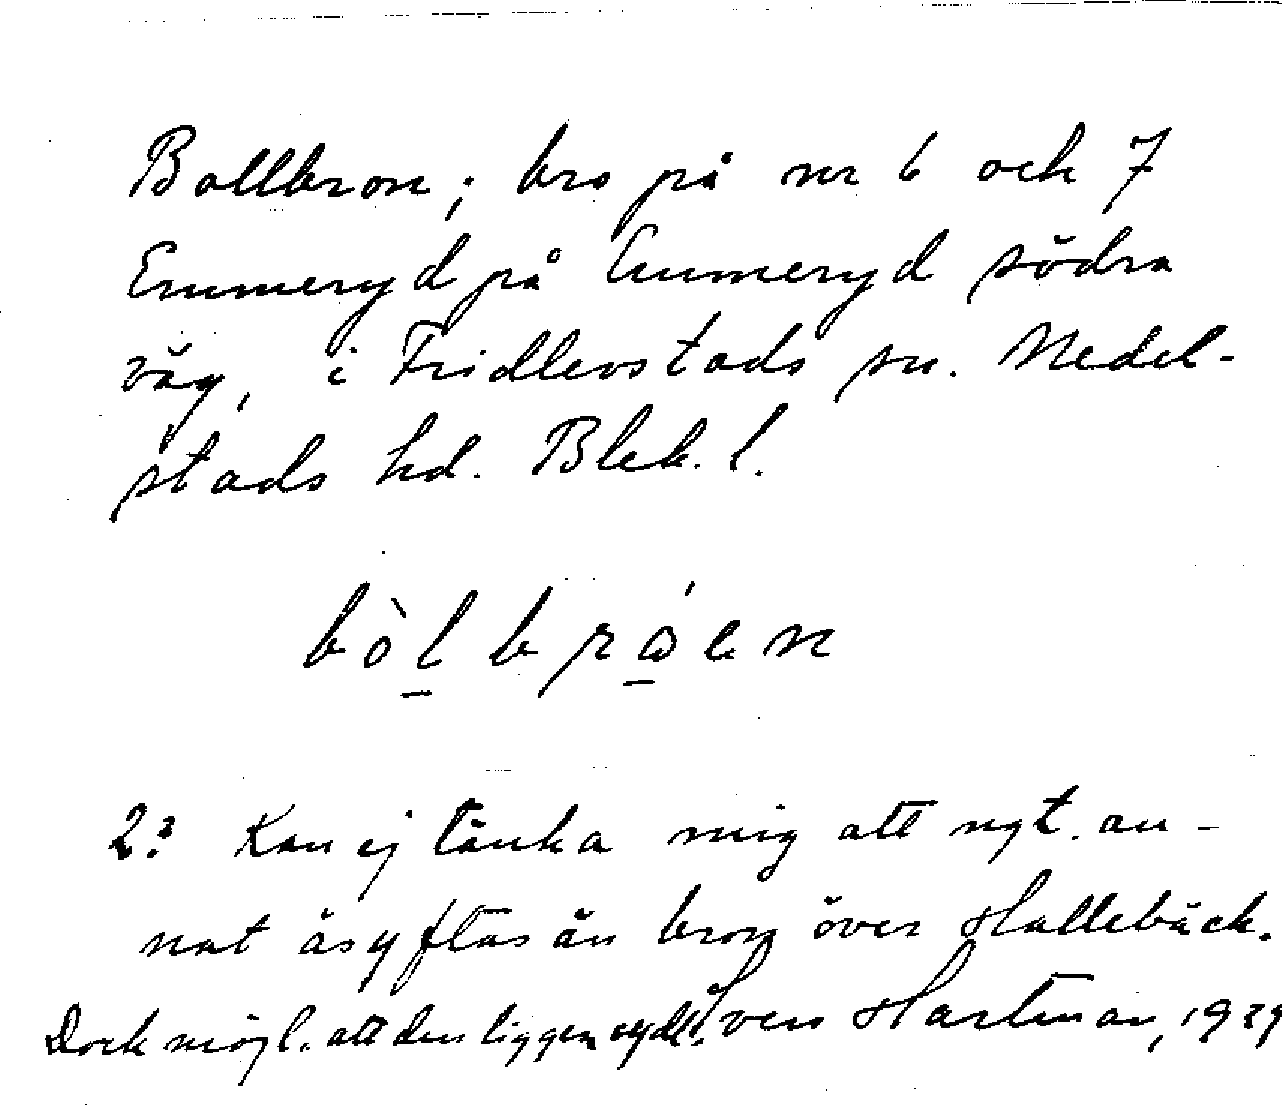 Bollbron; bro på nr 6 och 7
Emmeryd på Emmeryd södra
väg, i Fridlevstads sn. Medel-
stads hd. Blek. l.
bòl brɷ́en
2: Kan ej tänka mig att ngt. an-
nat åsyftas än bron över Hallebäck.
Dock möjl. att den ligger sydl. Iven Hartman, 1929